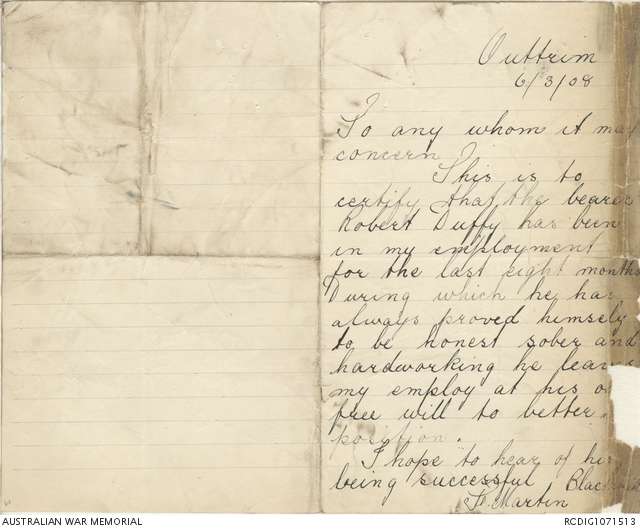 Outtrim
6/3/08
To any whom it may
concern
This is to
certify that the bearer
Robert Duffy has been
in my employment
for the last eight months
During which he has
always proved himself
to be honest sober and
hardworking he leaves
my employ at his own
free will to better
position.
I hope to hear of his
being successful
Martin
AUSTRALIAN WAR MEMORIAL
RCDIG1071513